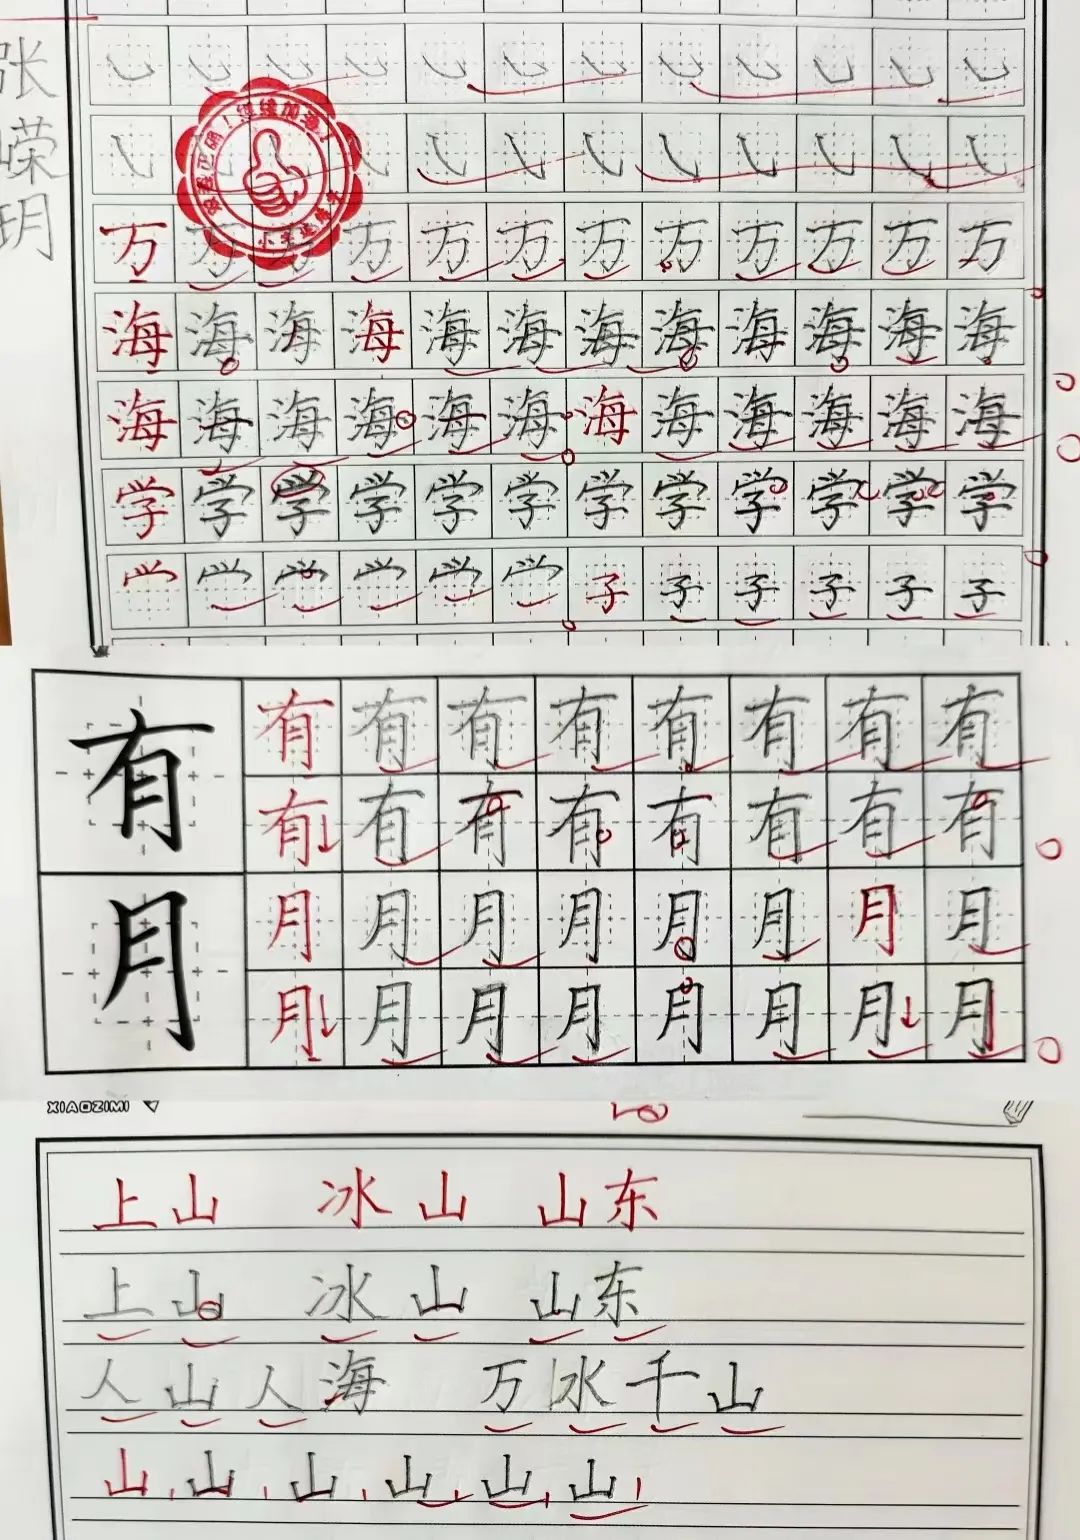 张嵘玥
万万万万万万万万万万万万
海海海海海海海海海海海海
海海海海海海海海海海海海
学学学学学学学学学学学学
子子子子子子
有有有有有有有有有
有有有有有有有有
月月月月月月月月月
月月月月月月月月
XIAOZIMI
上山 冰山 山东
上山 冰山 山东
人山人海 万水千山
山山山山山山